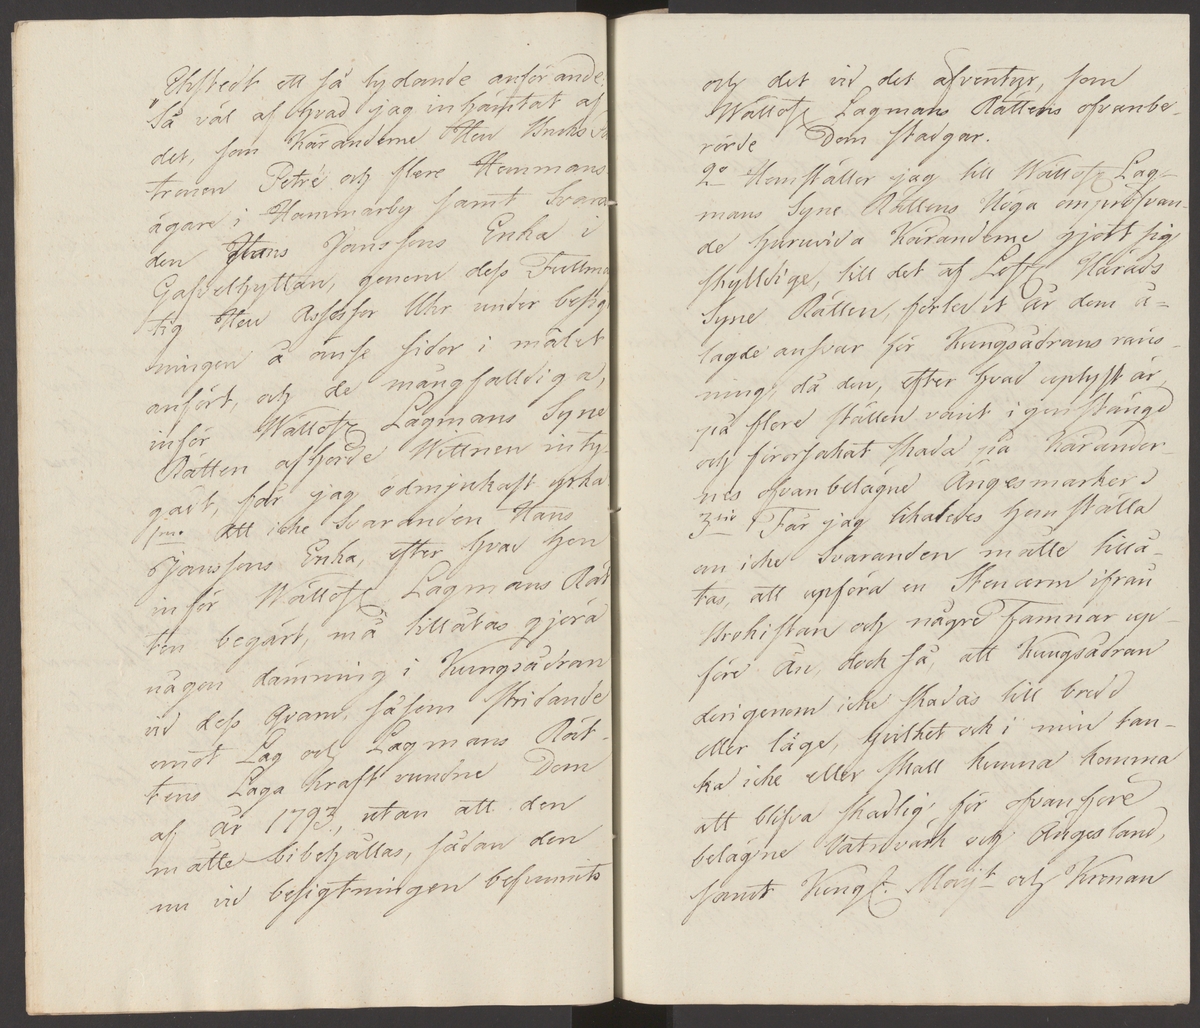 Ekstedt ett så lydande anförande:
"Så väl af hvad jag inhämtat af
det, som Käranderne Herr Bruks
tronen Petré och flere Hemmans
ägare i Hammarby samt Svara
den Hans Janssons Enka i
Gasselhyttan, genom dess Fullmä
tig Herr Assessor Uhr under besigt
ningen å ömse sidor i målet
anfört, och de mångfalldiga,
inför Wällofl. Lagmans Syne
Rätten afhörde Wittnen inty-
gadt, får jag ödmjukast yrka
1mo Att icke Svaranden Hans
Janssons Enka, efter hvad hon
inför Wällofl. Lagmans Rät
ten begärt, må tillåtas gjöra
någon dämning i Kungsådran
vid dess Qvarn, såsom stridande
emot Lag och Lagmans Rät-
tens Laga kraft vundne Dom
af år 1793, utan att den
måtte bibehållas, sådan den
nu vid besigtningen befunnits
och det vid det äfventyr, som
Wällofl. Lagmans Rättens ofvanbe-
rörde Dom stadgar.
2o Hemställer jag till Wällofl. Lag-
mans Syne Rättens Höga ompröfvan-
de huruvida Käranderne gjort sig
skylldige, till det af Lofl. Härads
Syne Rätten, förledit år dem å-
lagde ansvar för Kungsådrans räns-
ning, då den, efter hvad uplyst är,
på flere ställen varit igenstängd
och förorsakat skada på Kärander-
nes ofvanbelägne Ängesmarker
3tio Får jag likaledes hemställa
om icke Svaranden måtte tillå-
tas, att upföra en Stenarm ifrån
Brokistan och någre Famnar up-
före Ån, dock så, att Kungsådran
derigenom icke skadas till bredd
eller läge, hvilket och i min tan-
ka icke eller skall kunna komma
att blifva skadlig för ofvanföre
belägne Vatuvärk och Ängesland,
samt Kungl. Maj:t och Kronan